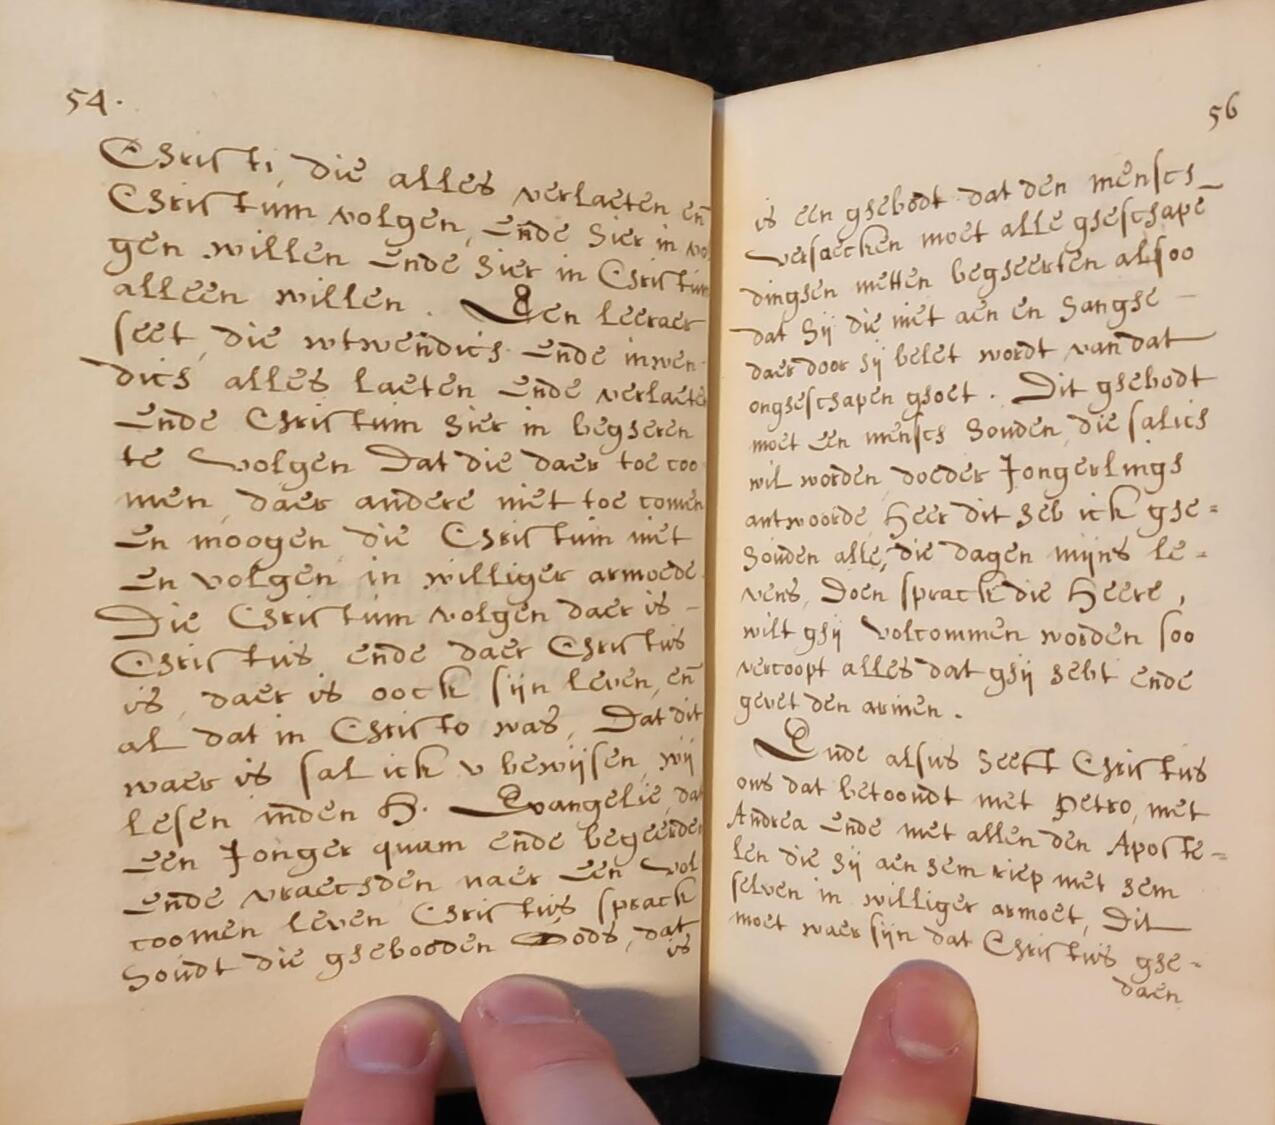 54.
Christi, die alles verlaeten en̄
Christum volgen, ende hier in vol
gen willen ende hier in Christum
alleen willen. Den leeraer
seet, die wtwendich ende inwen
dich alles laeten ende verlaeten
ende Christum hier in begheren
te volgen dat die daer toe coo
men, daer andere niet toe comen
en moogen die Christum niet
en volgen in williger armoede
Die Christum volgen daer is -
Christus ende daer Christus
is, daer is oock sijn leven, en̄
al dat in Christo was, Dat dit
waer is sal ick v bewijsen, wij
lesen inden H. Evangelie, dat
een Jonger quam ende begeerden
ende vraechden naer een vol
coomen leven Christus sprack
houdt die ghebooden Gods, dat
is
56
is een ghebodt dat den mensch
versaecken moet alle gheschape
dinghen metten begheerten alsoo
dat hij die niet aen en hanghe -
daer door hij belet wordt van dat
ongheschapen ghoet. Dit ghebodt
moet een mensch houden, die salich
wil worden, doeder Jongerlingh
antwoorde, Heer dit heb ick ghe=
houden alle, die dagen mijns le=
vens, Doen sprack die Heere,
wilt ghij volcommen worden soo
vercoopt alles dat ghij hebt ende
gevet den armen.
Ende alsus heeft Christus
ons dat betoondt met Petro, met
Andrea ende met allen den Aposte=
len die hij aen hem riep met hem
selven in williger armoet, Dit
moet waer sijn dat Christus ghe=
daen